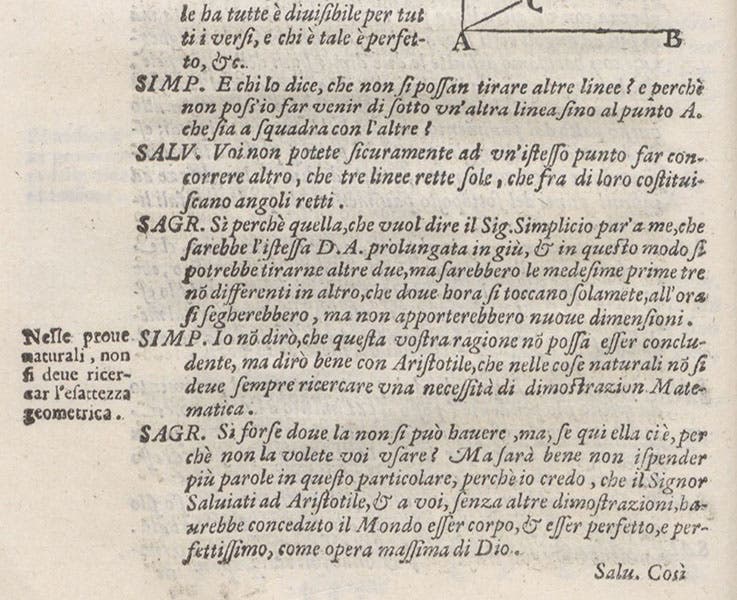 le ha tutte è diuisibile per tut
ti i versi, e chi è tale è perfet-
to, &c.
C
A B
SIMP. E chi lo dice, che non si possan tirare altre linee? e perchè
non poss'io far venir di sotto vn'altra linea sino al punto A.
che sia a squadra con l'altre?
SALV. Voi non potete sicuramente ad vn'istesso punto far con-
correre altro, che tre linee rette sole, che fra di loro costitui-
scano angoli retti.
SAGR. Sì perchè quella, che vuol dire il Sig. Simplicio par'a me, che
sarebbe l'istessa D.A. prolungata in giù, & in questo modo si
potrebbe tirarne altre due, ma sarebbero le medesime prime tre
nõ differenti in altro, che doue hora si toccano solamẽte, all'ora
si segherebbero, ma non apporterebbero nuoue dimensioni.
Nelle proue
naturali, non
si deue ricer-
car l'esattezza
geometrica.
SIMP. Io nõ dirò, che questa vostra ragione nõ possa esser conclu-
dente, ma dirò bene con Aristotile, che nelle cose naturali nõ si
deue sempre ricercare vna necessità di dimostrazion Mate-
matica.
SAGR. Sì forse doue la non si può hauere, ma, se qui ella ci è, per
chè non la volete voi vsare? Ma sarà bene non ispender
più parole in questo particolare, perchè io credo, che il Signor
Saluiati ad Aristotile, & a voi, senza altre dimostrazioni, ha-
urebbe conceduto il Mondo esser corpo, & esser perfetto, e per-
fettissimo, come opera massima di Dio.
Salu. Così